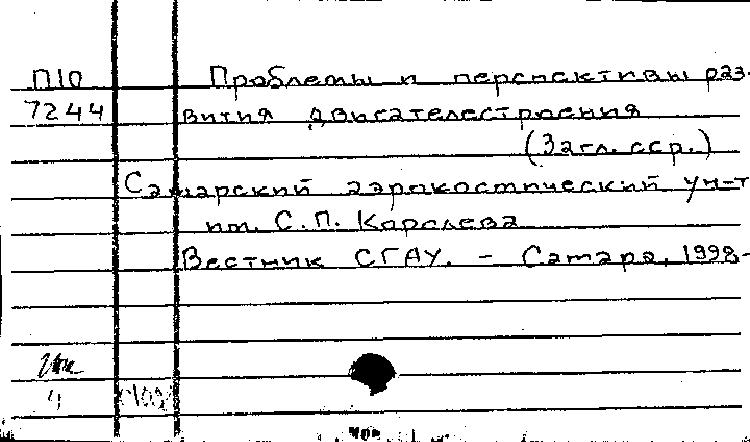 П10 Проблемы и перспективы раз-
7244 вития двигателестроения
(Загл. сер.)
Самарский аэрокосмический ун-т
им. С.П. Королева
Вестник СГАУ. - Самара, 1998-
4